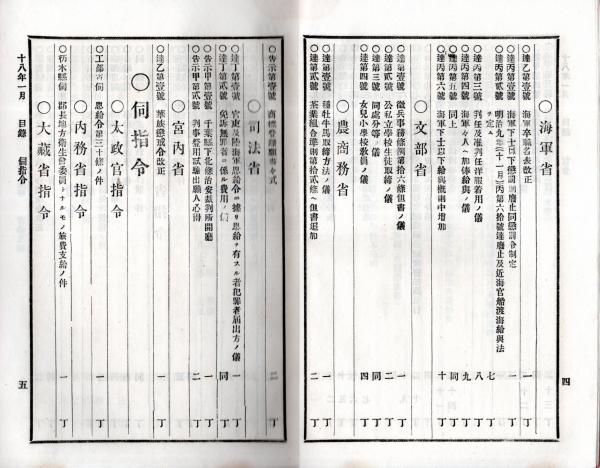 〇海軍省
〇達乙第壹號 海軍卒職名表改正 一丁
〇達丙第壹號 海軍下士以下懲罰則廢止同懲罰令制定 一丁
明治九年(十一月)丙第六拾號達廢止及近海官船渡海給與法
七丁
〇達丙第三號 判任及准判任洋服着用ノ儀 八丁
〇達丙第四號 海軍々人ヘ加俸給與ノ儀 九丁
〇達丙第五號 同上 同丁
〇達丙第六號 海軍下士以下給與概則中增加 十丁
〇文部省
〇達第壹號 徵兵事務條例第拾六條但書ノ儀 一丁
〇達第貳號 公私立學校生徒取締ノ儀 二丁
〇達第三號 同處分等ノ儀 同丁
〇達第四號 女兒小學校敎員ノ儀 四丁
〇農商務省
〇達第壹號 種牡牛馬取締方法ノ儀 一丁
〇達第貳號 茶業組合準則第拾貳條ヘ但書追加 二丁
四
〇告示第壹號 商標登錄願書々式 二丁
〇司法省
〇達丁第壹號 官吏及陸海軍恩給令ニ據リ恩給ヲ有スル者犯罪者屆出方ノ儀 一丁
〇達丁第貳號 免訴無罪者ニ係ル費用ノ儀 同丁
〇告示甲第壹號 千葉縣下北條治安裁判所開廳 一丁
〇告示甲第貳號 判事登用試驗出願人心得 二丁
〇宮內省
〇達乙第壹號 華族懲戒令改正 一丁
〇伺指令
〇太政官指令
〇工部省伺 恩給令第三十條ノ件 一丁
〇內務省指令
〇栃木縣伺 郡長地方衛生會委員トナルモノ旅費支給ノ件 一丁
〇大藏省指令
十八年一月 目錄 伺指令
五